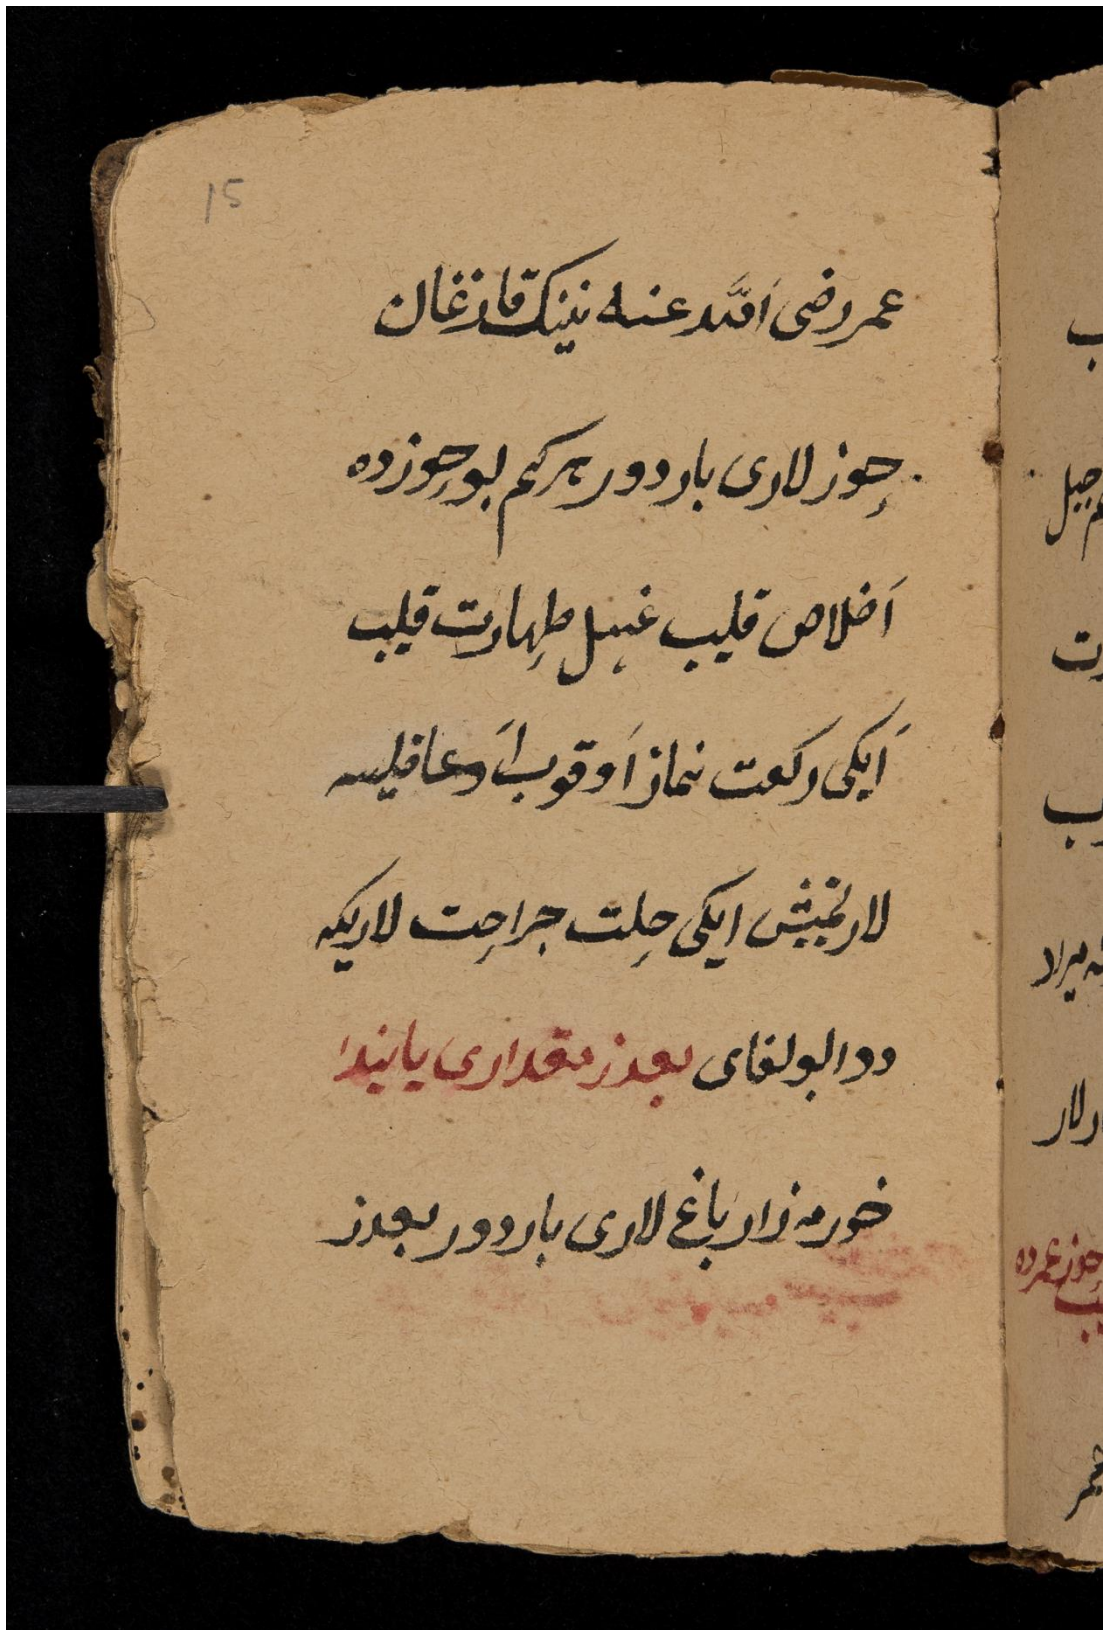 15
عمر رضی اللّه عنه نینک قازغان
حوزلاری باردور هر کیم بو حوزده
اخلاص قلیب غسل طهارت قلیب
ایکی رکعت نماز اوقوب دعا قلیسه
لار ایکی علت جراحت لاریکه
دوا بولغای بعدز مقداری یانیدا
خورمه زار باغ لاری باردور بعدز